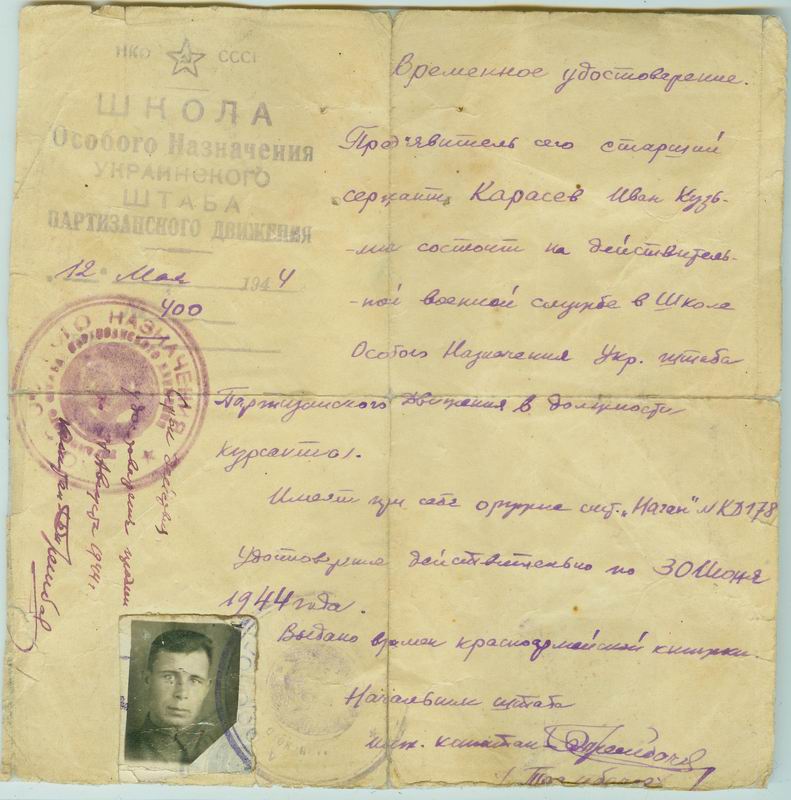 НКО СССР
ШКОЛА
Особого Назначения
УКРАИНСКОГО
ШТАБА
ПАРТИЗАНСКОГО ДВИЖЕНИЯ
12 Мая 1944
400
Временное удостоверение.
Предъявитель сего старший
сержант Карасев Иван Кузь-
-мич состоит на действитель-
-ной военной службе в Школе
Особого Назначения Укр. штаба
Партизанского Движения в должности
курсанта.
Имеет при себе оружие сист. „Наган" № КД178
Удостоверение действительно по 30 Июня
1944 года.
Выдано взамен красноармейской книжки.
Начальник штаба
инж. капитан
Срок действия
удостоверения
Августа 1944 г.
Капитан
НАЗНАЧЕНИЯ